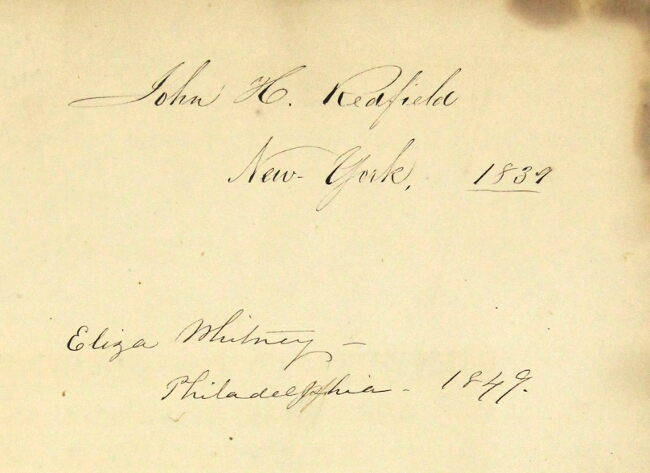 John H. Redfield
New-York, 1839
Eliza Whitney –
Philadelphia – 1849.